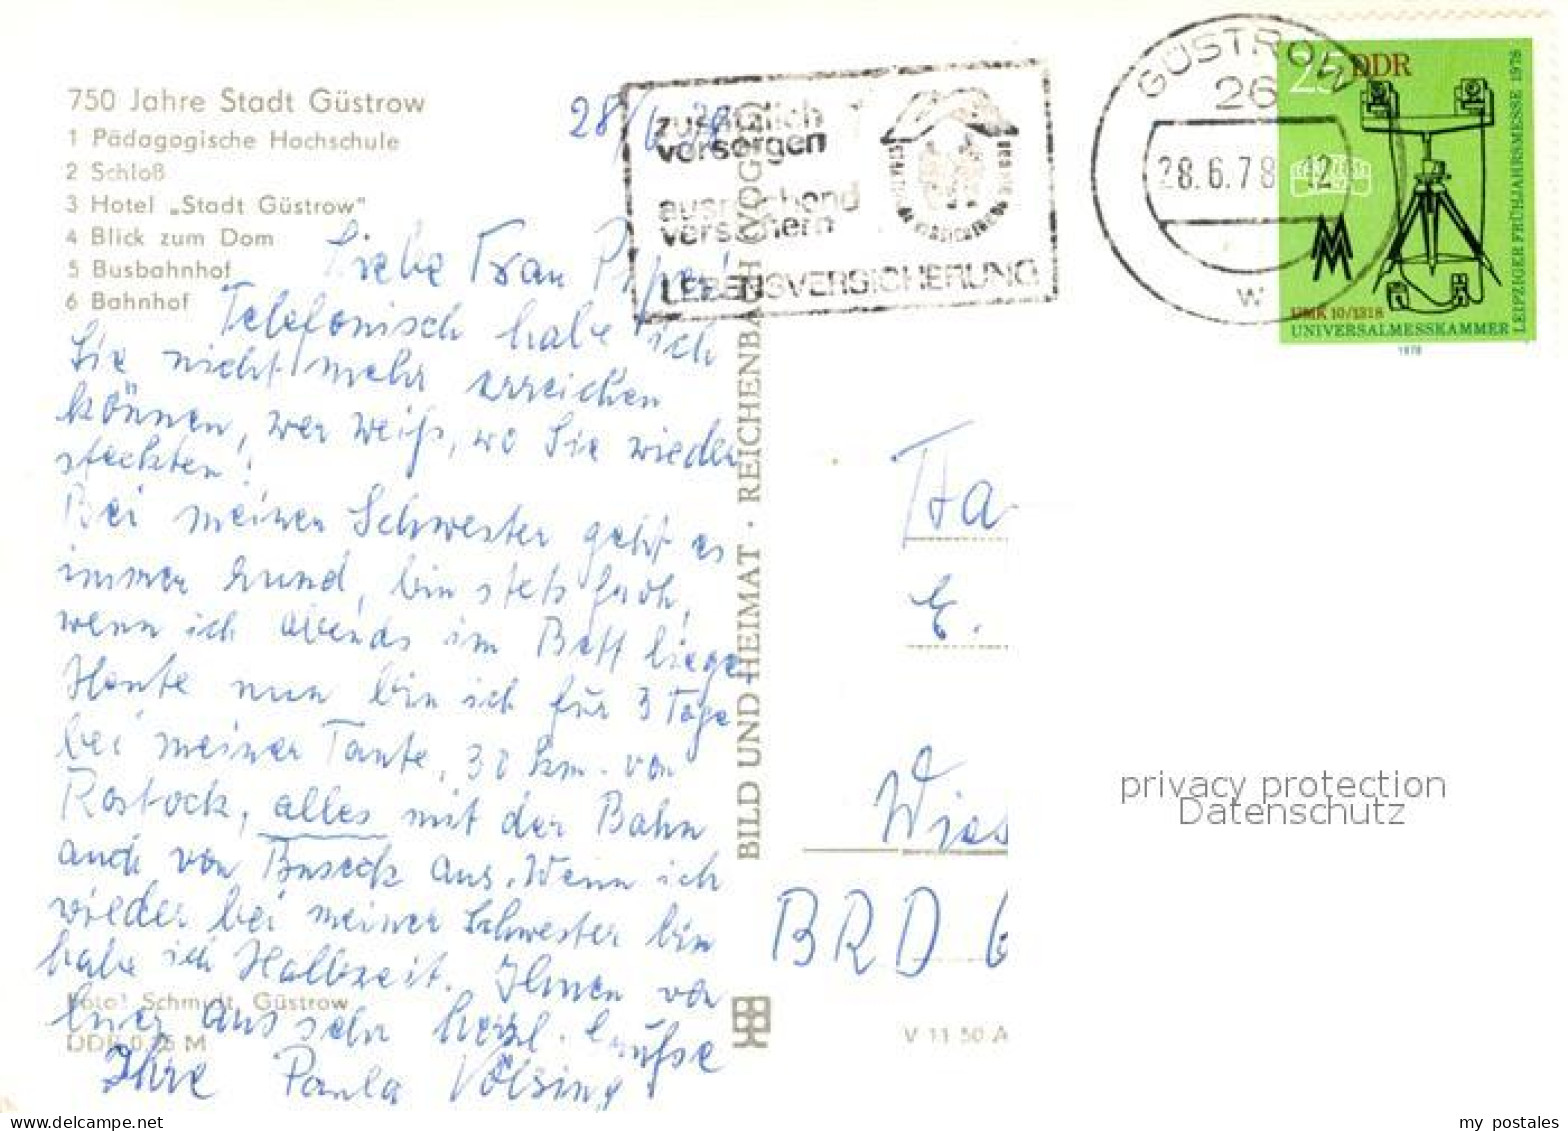 750 Jahre Stadt Güstrow
1 Pädagogische Hochschule
2 Schloß
3 Hotel „Stadt Güstrow"
4 Blick zum Dom
5 Busbahnhof
6 Bahnhof
28/6. 78
Liebe Frau
Telefonisch habe ich
Sie nicht mehr erreichen
können, wer weiß, wo Sie wieder
steckten!
Bei meiner Schwester geht es
immer rund, bin stets froh,
wenn ich abends im Bett liege
Heute nun bin ich für 3 Tage
bei meiner Tante, 30 km. von
Rostock, alles mit der Bahn
auch von Buseck aus. Wenn ich
wieder bei meiner Schwester bin
habe ich Halbzeit. Ihnen von
hier aus sehr herzl. Grüße
Ihre Paula Völsing
Foto: Schmidt, Güstrow
DDR 0,25 M
BILD UND HEIMAT · REICHENBACH (VOGTL)
zusätzlich
versorgen
ausreichend
versichern
LEBENSVERSICHERUNG
GÜSTROW
26
28.6.78 12
w
25 DDR
UMK 10/1318
UNIVERSALMESSKAMMER
LEIPZIGER FRÜHJAHRSMESSE 1978
1978
Ha
E.
Wies
BRD 6
V 11 50 A
privacy protection
Datenschutz
my postales